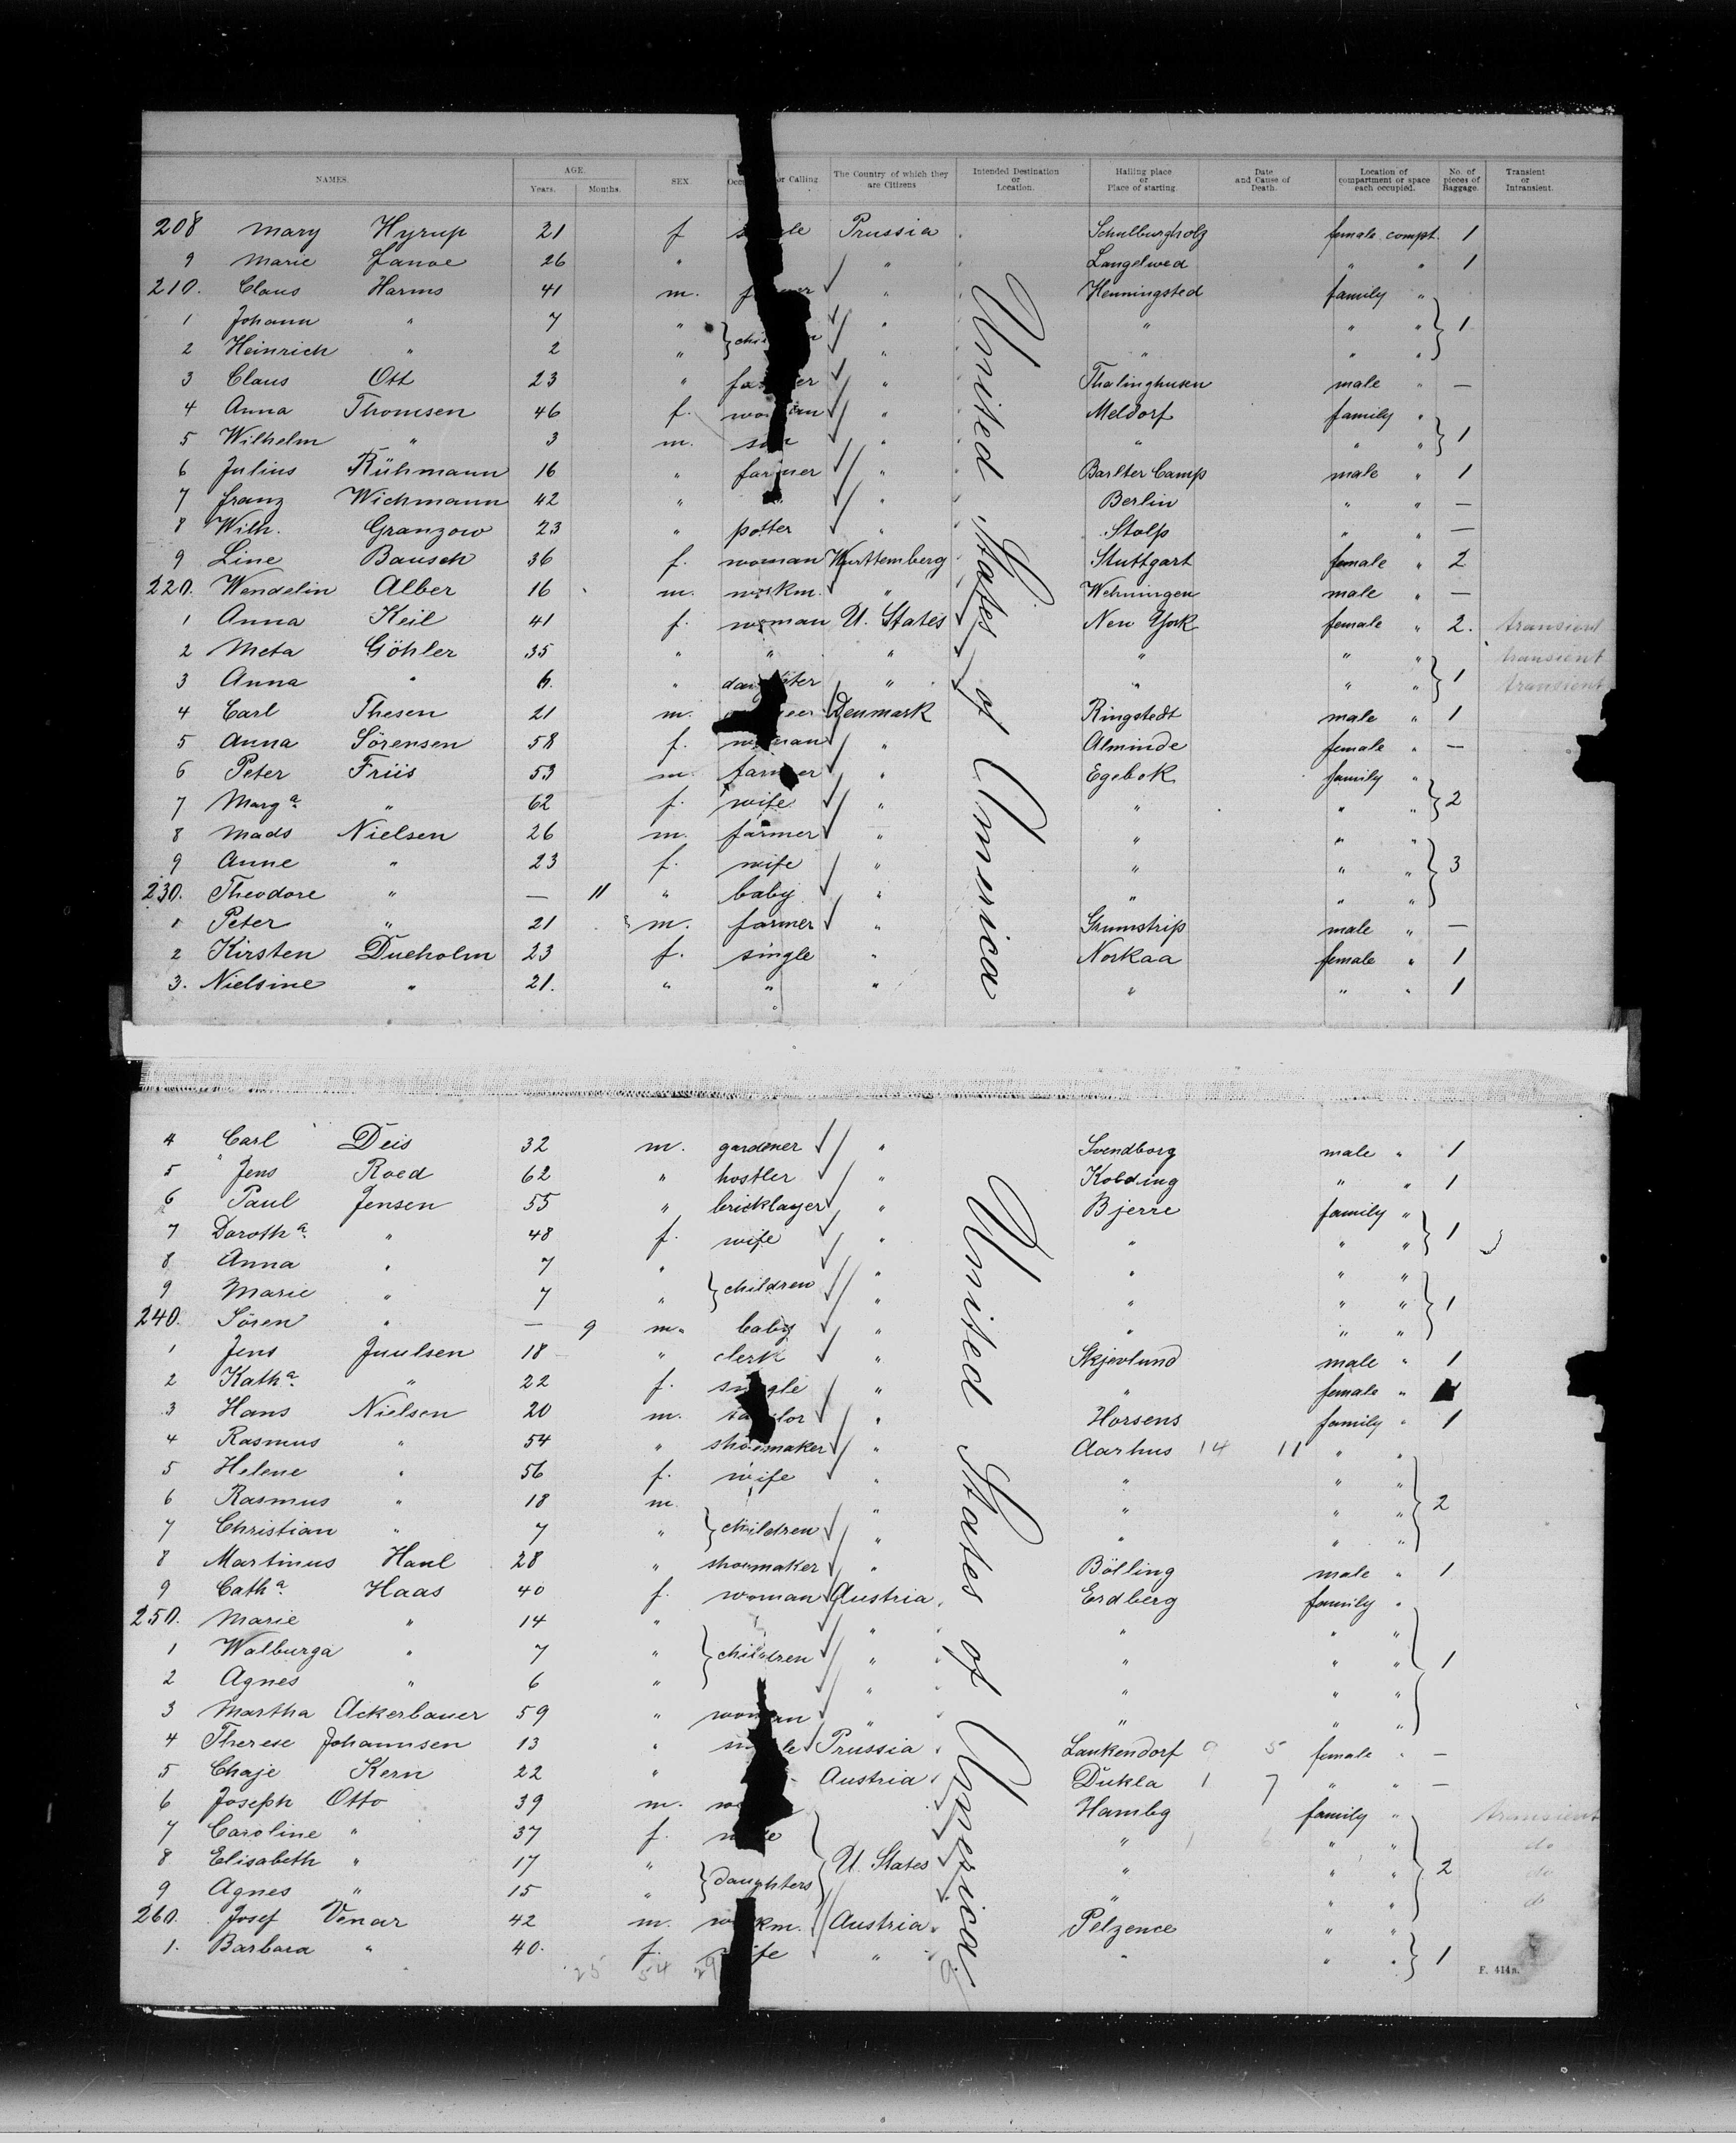 NAMES. AGE. Years. Months. SEX. or Calling. The Country of which they are Citizens Intended Destination or Location. Hailing place or Place of starting. Date and Cause of Death. Location of compartment or space each occupied. No. of pieces of Baggage. Transient or Intransient.
208 Mary Hyrup 21 f Prussia Schulburgholz female compt. 1
9 Marie 26 " " Langelwed " " 1
210. Claus Harms 41 m. " Henningsted family "
1 Johann " 7 " " " " " 1
2 Heinrich " 2 " " " " "
3 Claus Ott 23 " farmer " Thalinghusen male " —
4 Anna Thomsen 46 f. woman " Meldorf family "
5 Wilhelm " 3 m. son " " " " 1
6 Julius Rühmann 16 " farmer " Barlter Camp male " 1
7 Franz Wichmann 42 " " Berlin " " —
8 Wilh. Granzow 23 " potter " Stolp " " —
9 Line Bausch 36 f. woman Württemberg Stuttgart female " 2
220. Wendelin Alber 16 m. workm. " Wehningen male " —
1 Anna Keil 41 f. woman U. States New York female " 2. transient
2 Meta Göhler 35 " " " " " " transient
3 Anna " 6. " daughter " " " " 1 transient
4 Carl Thesen 21 m. Denmark Ringstedt male " 1
5 Anna Sörensen 58 f. woman " Alminde female " —
6 Peter Friis 53 m. farmer " Egebek family "
7 Marga. " 62 f. wife " " " " 2
8 Mads Nielsen 26 m. farmer " " " "
9 Anne " 23 f. wife " " " " 3
230. Theodore " — 11 " baby " " " "
1 Peter " 21 m. farmer " Grumstrip male " —
2 Kirsten Dueholm 23 f. single " Norkaa female " 1
3. Nielsine " 21. " " " " " " 1
United States of America
4 Carl Deis 32 m. gardener " Svendborg male " 1
5 Jens Roed 62 " hostler " Kolding " " 1
6 Paul Jensen 55 " bricklayer " Bjerre family "
7 Dorotha. " 48 f. wife " " " " 1
8 Anna " 7 " " " " "
9 Marie " 7 " children " " " " 1
240. Sören " — 9 m. baby " " " "
1 Jens Juulsen 18 " clerk " Skjevlund male " 1
2 Katha. " 22 f. single " " female "
3 Hans Nielsen 20 m. " Horsens family " 1
4 Rasmus " 54 " shoemaker " Aarhus 14 11 " "
5 Helene " 56 f. wife " " " "
6 Rasmus " 18 m. " " " " 2
7 Christian " 7 " children " " " "
8 Martinus Haul 28 " shoemaker " Bölling male " 1
9 Catha. Haas 40 f. woman Austria. Erdberg family "
250. Marie " 14 " " " " "
1 Walburga " 7 " children " " " " 1
2 Agnes " 6 " " " " "
3 Martha Ackerbauer 59 " woman " " " "
4 Therese Johannsen 13 " single Prussia Laukendorf 9 5 female " —
5 Chaje Kern 22 " Austria Dukla 1 7 " " —
6 Joseph Otto 39 m. Hambg family " transient
7 Caroline " 37 f. wife " 1 6 " " do
8 Elisabeth " 17 " U. States " " " 2 do
9 Agnes " 15 " daughters " " " do
260. Josef Venar 42 m. workm. Austria Pelzence " "
1. Barbara " 40. f. wife " " " " 1
25 54 29
United States of America
F. 414B.